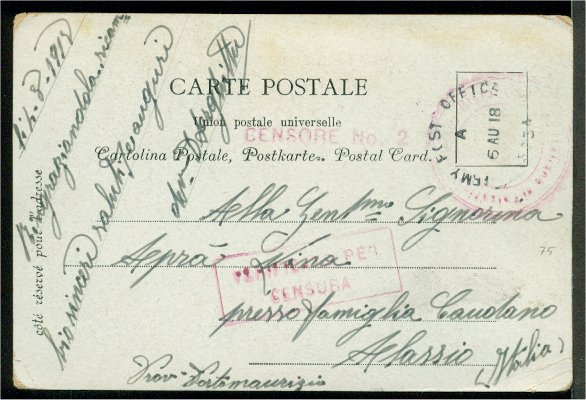 li 4-8-1918
Ringraziandola ricam
bio sinceri saluti ed auguri
CARTE POSTALE
Union postale universelle
CENSORE No. 2
Cartolina Postale, Postkarte. Postal Card.
côté réservé pour l'adresse
ARMY POST OFFICE
A
5 AU 18
Alla Gent.ma Signorina
Aprà Nina
VERIFICATO PER
CENSURA
presso famiglia Caudano
Alassio (Italia)
Prov. Portomaurizio
75